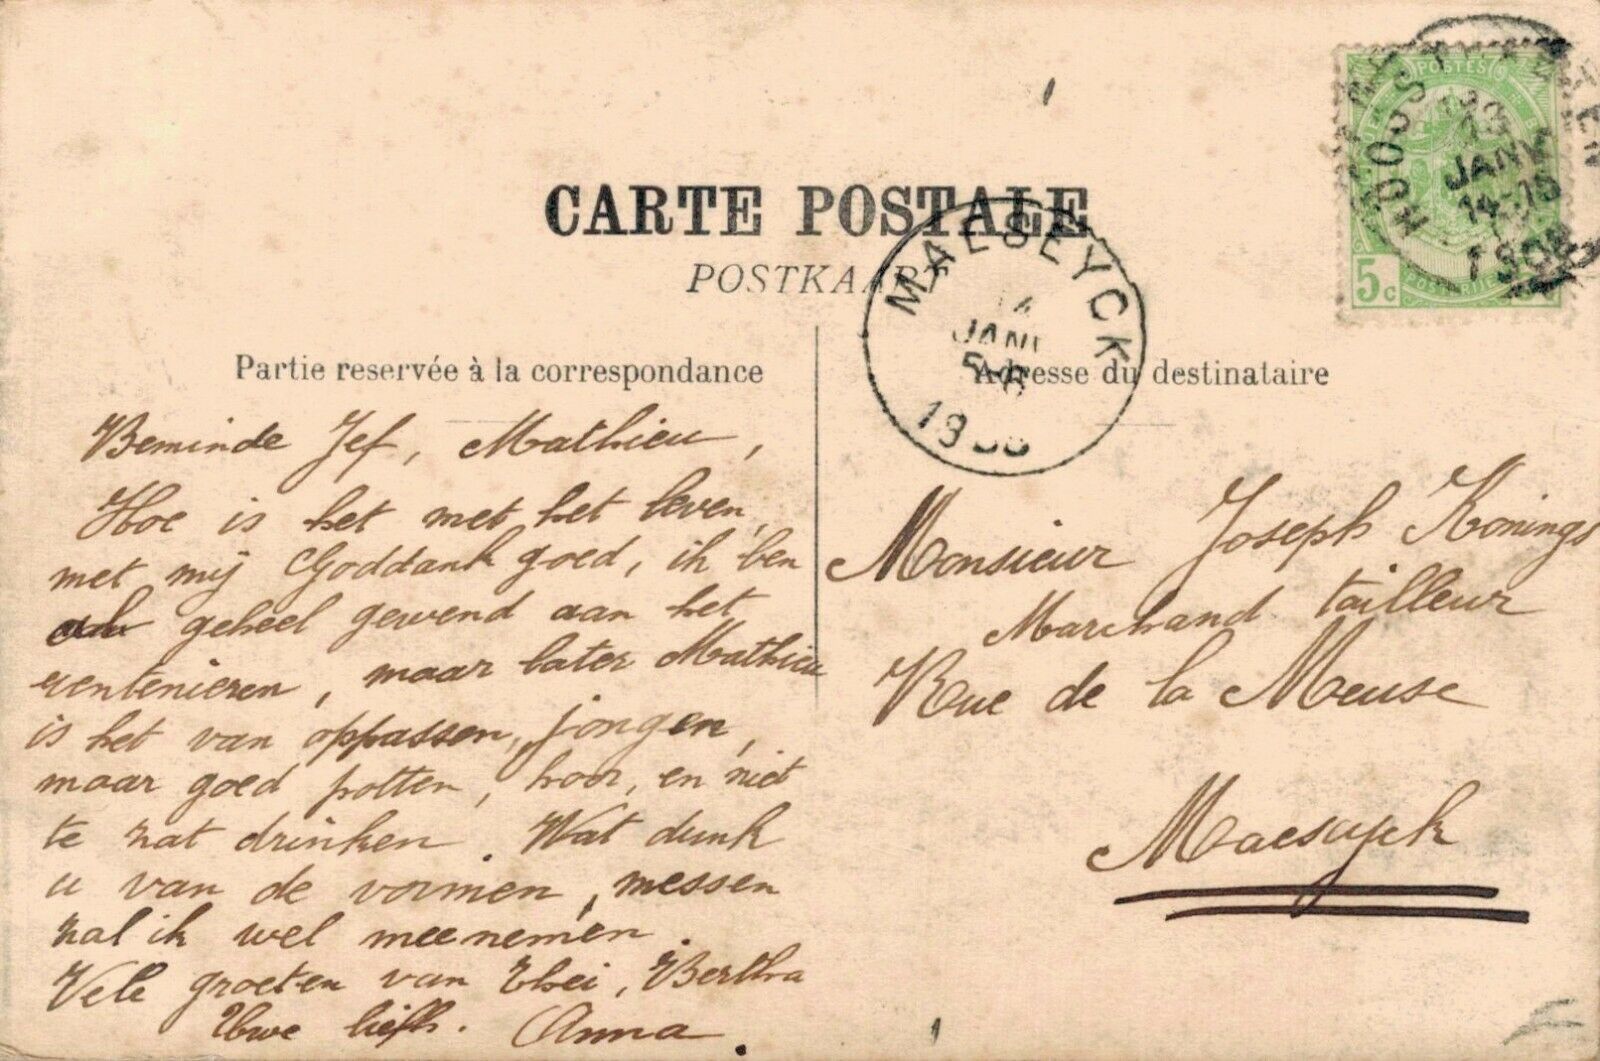 CARTE POSTALE
POSTKAART
Partie reservée à la correspondance
Adresse du destinataire
POSTES
5c
JANV
14-15
MAESEYCK
14
JANV
1908
Beminde Jef, Mathieu,
Hoe is het met het leven,
met mij Goddank goed, ik ben
geheel gewend aan het
rentenieren, maar later Mathieu
is het van oppassen, jongen,
maar goed potten, hoor, en niet
te zat drinken. Wat dunk
u van de vormen, messen
zal ik wel meenemen.
Vele groeten van Bertha
Uwe liefh. Anna.
Monsieur Joseph Konings
Marchand tailleur
Rue de la Meuse
Maeseyck